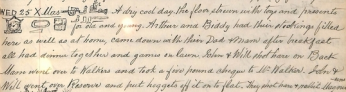 WED 25 X Mas A dry cool day the floor strewn with toys and presents
for old and young. Arthur and Boddy had their stockings filled
here as well as at home, came down with their Dad & Mam after breakfast
all had dinner together and games on lawn. John & Will shot hare on Back
Mam went over to Walkers and took a few pound to Mr Walker. John &
Will went over Reserve and put heggets off it on to flat. They shot